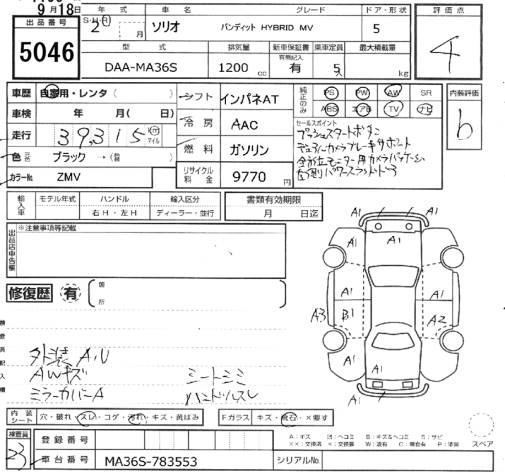 9月18日
出品番号
5046
年式
車名
グレード
ドア・形状
評価点
2
月
ソリオ
バンディット HYBRID MV
5
4
型式
排気量
新車保証書
乗車定員
最大積載量
DAA-MA36S
1200 cc
有
5
人
kg
車歴
自家用・レンタ( )
シフト
インパネAT
純正のみ
PS
PW
AW
SR
内装評価
車検
年 月( S)
ABS
エアB
TV
ナビ
b
冷房
AAC
走行
39,315
セールスポイント
プッシュスタートボタン
デュアルカメラブレーキサポート
全方位モニター用カメラパッケージ
左側パワースライドドア
色
ブラック
燃料
ガソリン
カラーNo
ZMV
リサイクル料金
9770 円
輸入車
モデル年式
ハンドル
輸入区分
書類有効期限
右H・左H
ディーラー・並行
月 日迄
出品店申告欄
※注意事項等記載
A1
A1
A1
A1
A1
A1
A3
B1
A2
A1
A1
修復歴
有
箇所
外装 A,U
AWキズ
ミラーカバーA
シートシミ
ハンドルスレ
内装シート
穴・破れ・スレ・コゲ・汚れ・キズ・黄ばみ
Fガラス
キズ・飛石・X要す
検査員
3
登録番号
スペア
車台番号
MA36S-783553
シリアルNo.